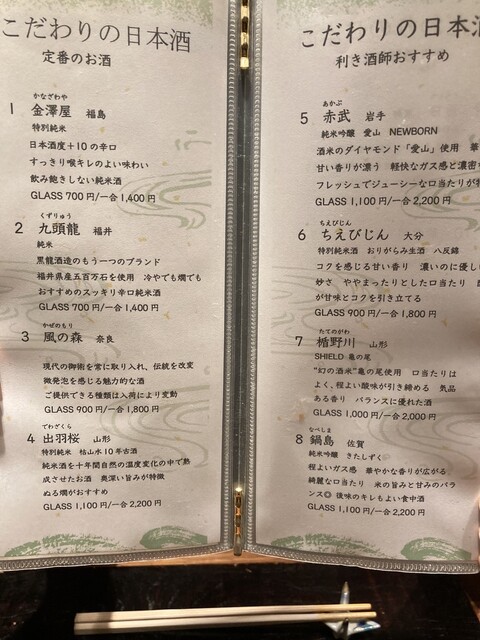 こだわりの日本酒
定番のお酒
かなざわや
1 金澤屋 福島
特別純米
日本酒度+10の辛口
すっきり喉キレのよい味わい
飲み飽きしない純米酒
GLASS 700円/一合 1,400円
くずりゅう
2 九頭龍 福井
純米
黒龍酒造のもう一つのブランド
福井県産五百万石を使用 冷やでも燗でも
おすすめのスッキリ辛口純米酒
GLASS 700円/一合 1,400円
かぜのもり
3 風の森 奈良
現代の技術を常に取り入れ、伝統を改変
微発泡を感じる魅力的な酒
ご提供できる種類は入荷により変動
GLASS 900円/一合 1,800円
でわざくら
4 出羽桜 山形
特別純米 枯山水10年古酒
純米酒を十年間自然の温度変化の中で熟
成させたお酒 奥深い旨みが特徴
ぬる燗がおすすめ
GLASS 1,100円/一合 2,200円
こだわりの日本酒
利き酒師おすすめ
あかぶ
5 赤武 岩手
純米吟醸 愛山 NEWBORN
酒米のダイヤモンド「愛山」使用 華
甘い香りが漂う 軽快なガス感と濃密
フレッシュでジューシーな口当たりが
GLASS 1,100円/一合 2,200円
ちえびじん
6 ちえびじん 大分
特別純米酒 おりがらみ生酒 八反錦
コクを感じる甘い香り 濃いのに優し
妙さ ややまったりとした口当たり
が甘味とコクを引き立てる
GLASS 900円/一合 1,800円
たてのがわ
7 楯野川 山形
SHIELD 亀の尾
"幻の酒米"亀の尾使用 口当たりは
よく、程よい酸味が引き締める 気品
ある香り バランスに優れた酒
GLASS 1,000円/一合 2,000円
なべしま
8 鍋島 佐賀
純米吟醸 きたしずく
程よいガス感 華やかな香りが広がる
綺麗な口当たり 米の旨みと甘みのバラ
ンス◎ 後味のキレもよい食中酒
GLASS 1,100円/一合 2,200円